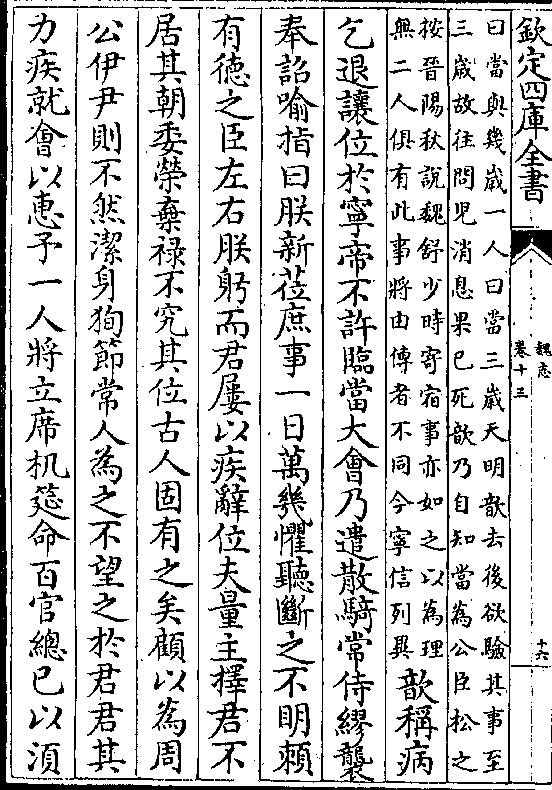 欽定四庫全書
魏志
卷十三
十六
曰當與幾歲一人曰當三歲天明歆去後欲驗其事至
三歲故往問兒消息果已死歆乃自知當為公臣松之
按晉陽秋說魏舒少時寄宿事亦如之以為理
無二人俱有此事將由傳者不同今寧信列異
歆稱病
乞退讓位於寧帝不許臨當大會乃遣散騎常侍繆襲
奉詔喻指曰朕新莅庶事一日萬幾懼聽斷之不明頼
有徳之臣左右朕躬而君屢以疾辭位夫量主擇君不
居其朝委榮棄禄不究其位古人固有之矣顧以為周
公伊尹則不然潔身狥節常人為之不望之於君君其
力疾就會以惠予一人將立席机筵命百官總已以湏